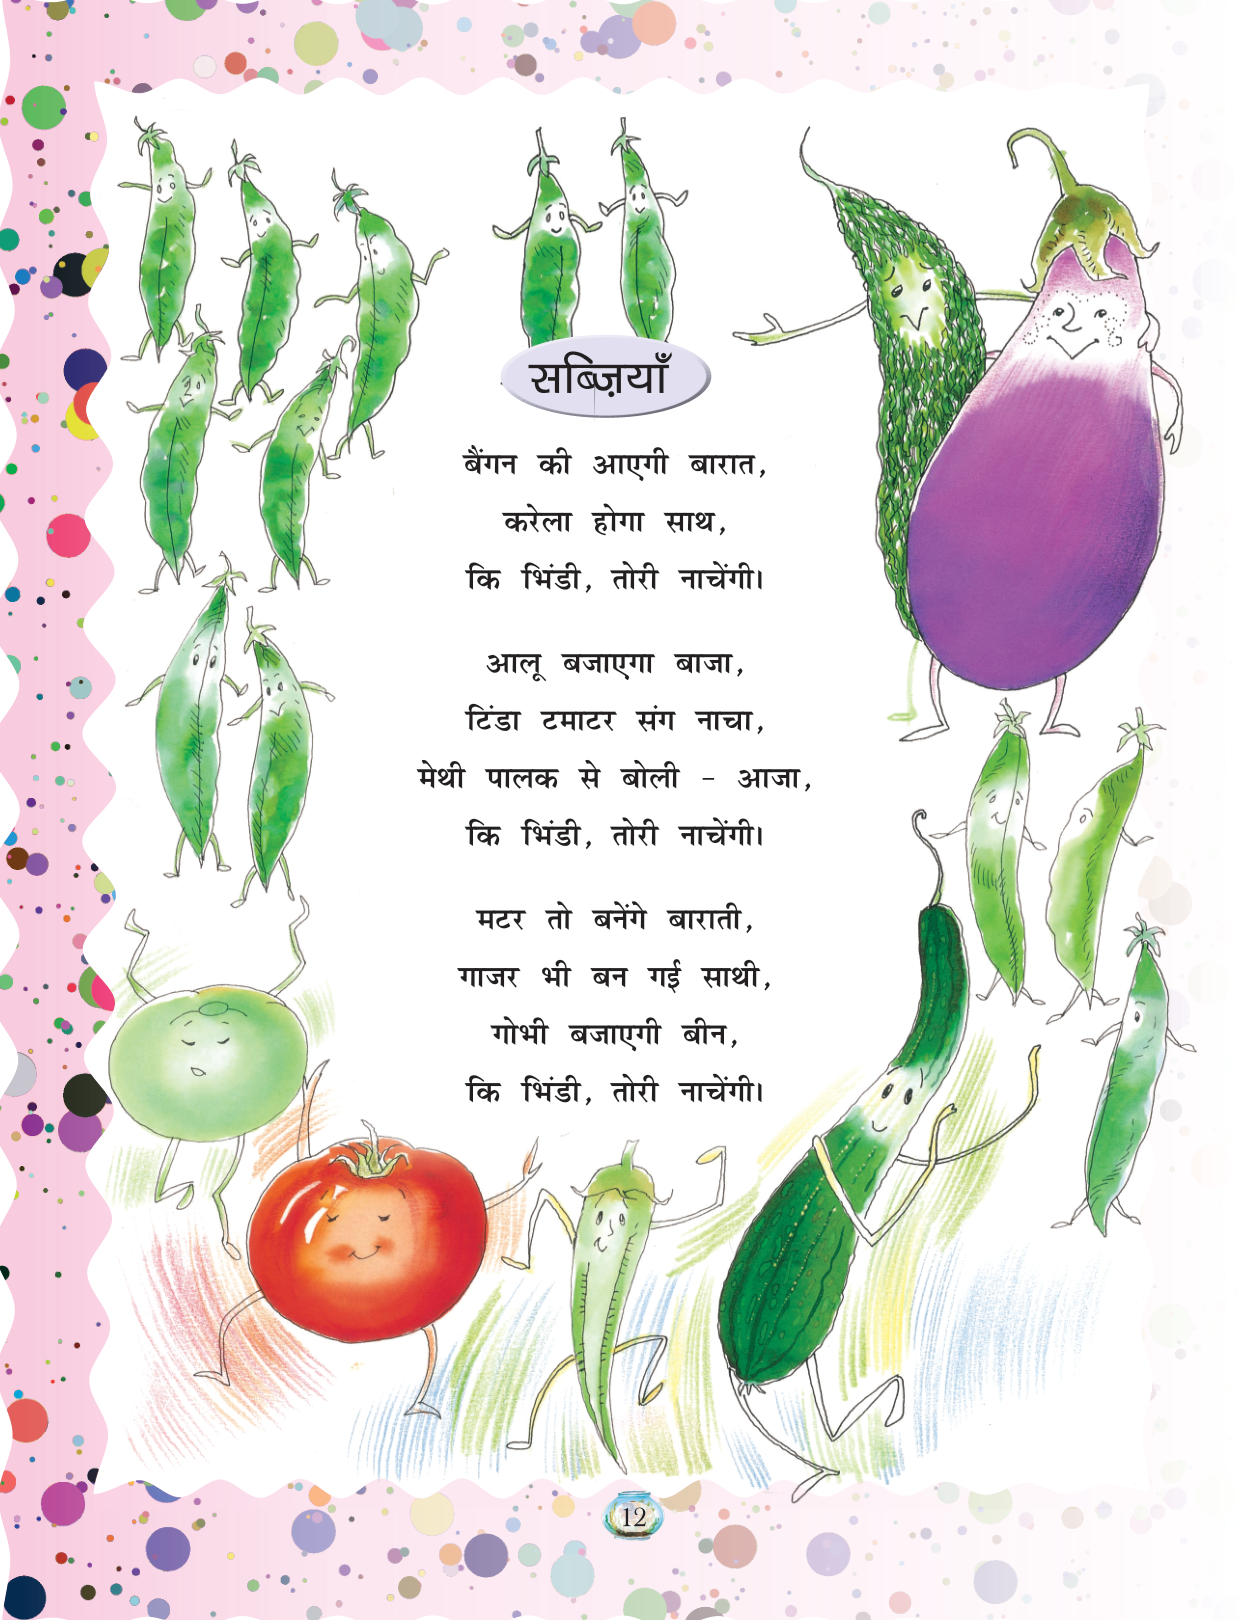 सब्ज़ियाँ
बैंगन की आएगी बारात,
करेला होगा साथ,
कि भिंडी, तोरी नाचेंगी।
आलू बजाएगा बाजा,
टिंडा टमाटर संग नाचा,
मेथी पालक से बोली – आजा,
कि भिंडी, तोरी नाचेंगी।
मटर तो बनेंगे बाराती,
गाजर भी बन गई साथी,
गोभी बजाएगी बीन,
कि भिंडी, तोरी नाचेंगी।
12